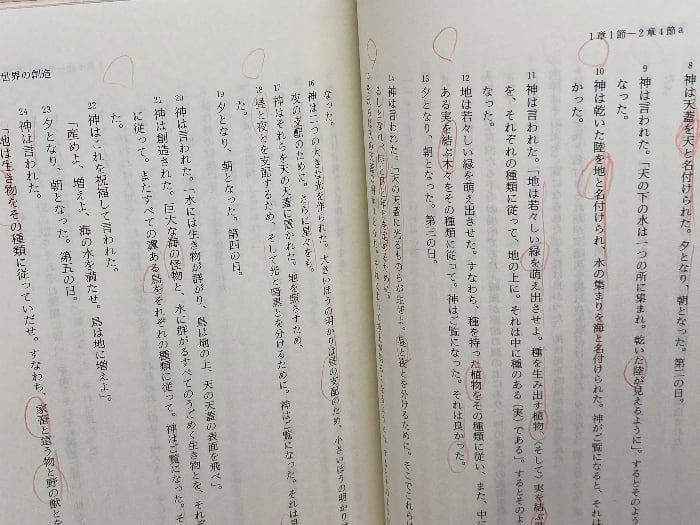 1章1節—2章4節a
8 神は天蓋を天と名付けられた。夕となり、朝となった。第二の日。
9 神は言われた。「天の下の水は一つの所に集まれ。乾いた陸が見えるように」。するとそのよう
なった。
10 神は乾いた陸を地と名付けられ、水の集まりを海と名付けられた。神がご覧になると、それは
かった。
11 神は言われた。「地は若々しい緑を萌え出させよ。種を生み出す植物、〈そして〉実を結ぶ
を、それぞれの種類に従って、地の上に。それは中に種のある〔実〕である」。するとそのよう
なった。
12 地は若々しい緑を萌え出させた。すなわち、種を持った植物をその種類に従い、また、中に
ある実を結ぶ木々をその種類に従って。神はご覧になった。それは良かった。
13 夕となり、朝となった。第三の日。
14 神は言われた。「天の天蓋に光るものらが生ぜよ。昼と夜とを分けるために。そこでこれらは
世界の創造
なった。
16 神は二つの大きな光を作られた。大きいほうの明かりは昼の支配のため、小さいほうの明かりは
夜の支配のために。さらに星々を。
17 神はそれらを天の天蓋に置かれた。地を照らすため、
18 昼と夜とを支配するため、そして光と暗黒とを分けるために。神はご覧になった。それは
た。
19 夕となり、朝となった。第四の日。
20 神は言われた。「水には生き物が群がり、鳥は地の上、天の天蓋の表面を飛べ」。
21 神は創造された。巨大な海の怪物と、水に群がるすべてのうごめく生き物とを、それぞれ
に従って。またすべての翼ある鳥をそれぞれの種類に従って。神はご覧になった。そ
た。
22 神はこれを祝福して言われた。
「産めよ、増えよ、海の水を満たせ。鳥は地に増えよ」。
23 夕となり、朝となった。第五の日。
24 神は言われた。
「地は生き物をその種類に従っていだせ。すなわち、家畜と這う物と野の獣とを